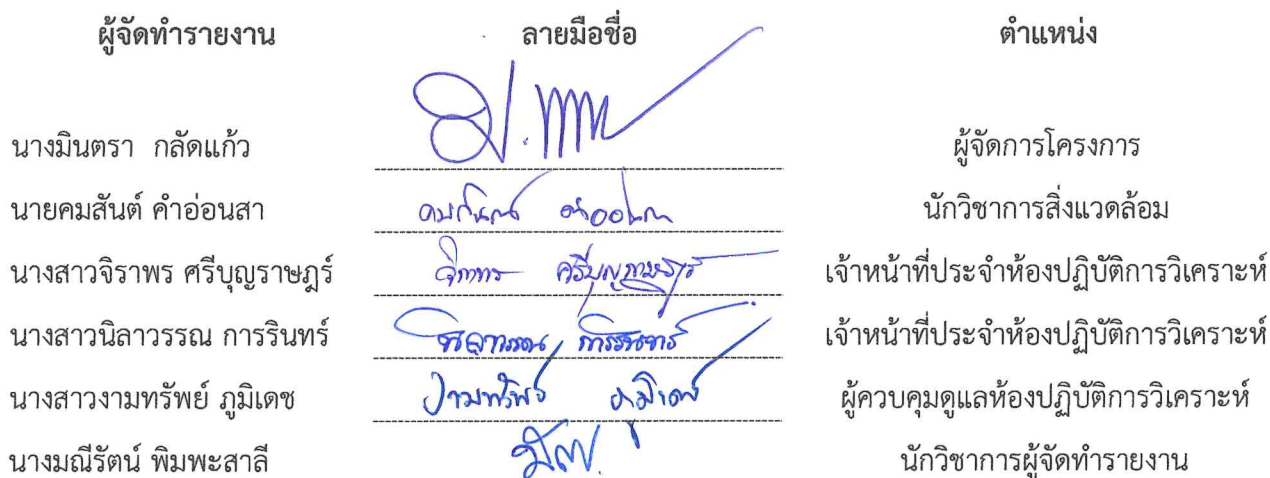 ผู้จัดทำรายงาน ลายมือชื่อ ตำแหน่ง
นางมินตรา กลัดแก้ว ผู้จัดการโครงการ
นายคมสันต์ คำอ่อนสา คมสันต์ คำอ่อนสา นักวิชาการสิ่งแวดล้อม
นางสาวจิราพร ศรีบุญราษฎร์ จิราพร ศรีบุญราษฎร์ เจ้าหน้าที่ประจำห้องปฏิบัติการวิเคราะห์
นางสาวนิลาวรรณ การรินทร์ นิลาวรรณ การรินทร์ เจ้าหน้าที่ประจำห้องปฏิบัติการวิเคราะห์
นางสาวงามทรัพย์ ภูมิเดช งามทรัพย์ ภูมิเดช ผู้ควบคุมดูแลห้องปฏิบัติการวิเคราะห์
นางมณีรัตน์ พิมพะสาลี นักวิชาการผู้จัดทำรายงาน